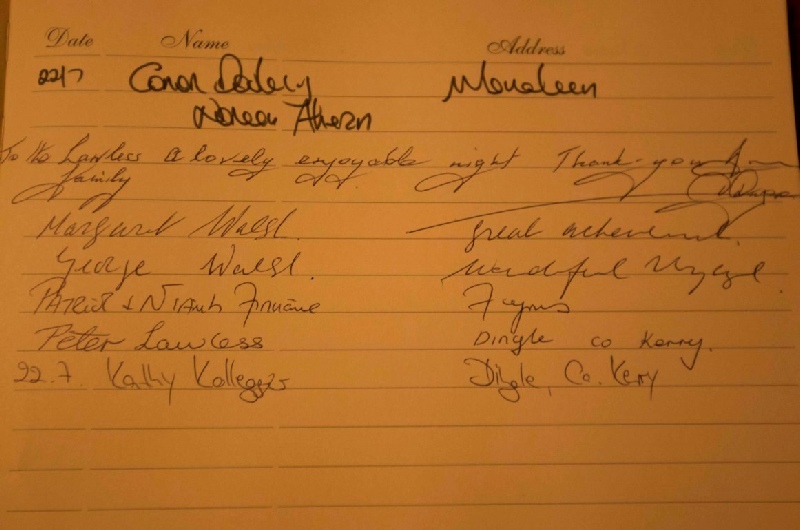 Date Name Address
22/7 Conor Monaleen
Noreen Ahern
To the Lawless a lovely enjoyable night Thank-you
family
Margaret Walsh. great achievement.
George Walsh. wonderful
Patrick & Niamh Finucane
Peter Lawless Dingle co Kerry.
22.7. Kathy Dingle, Co. Kerry